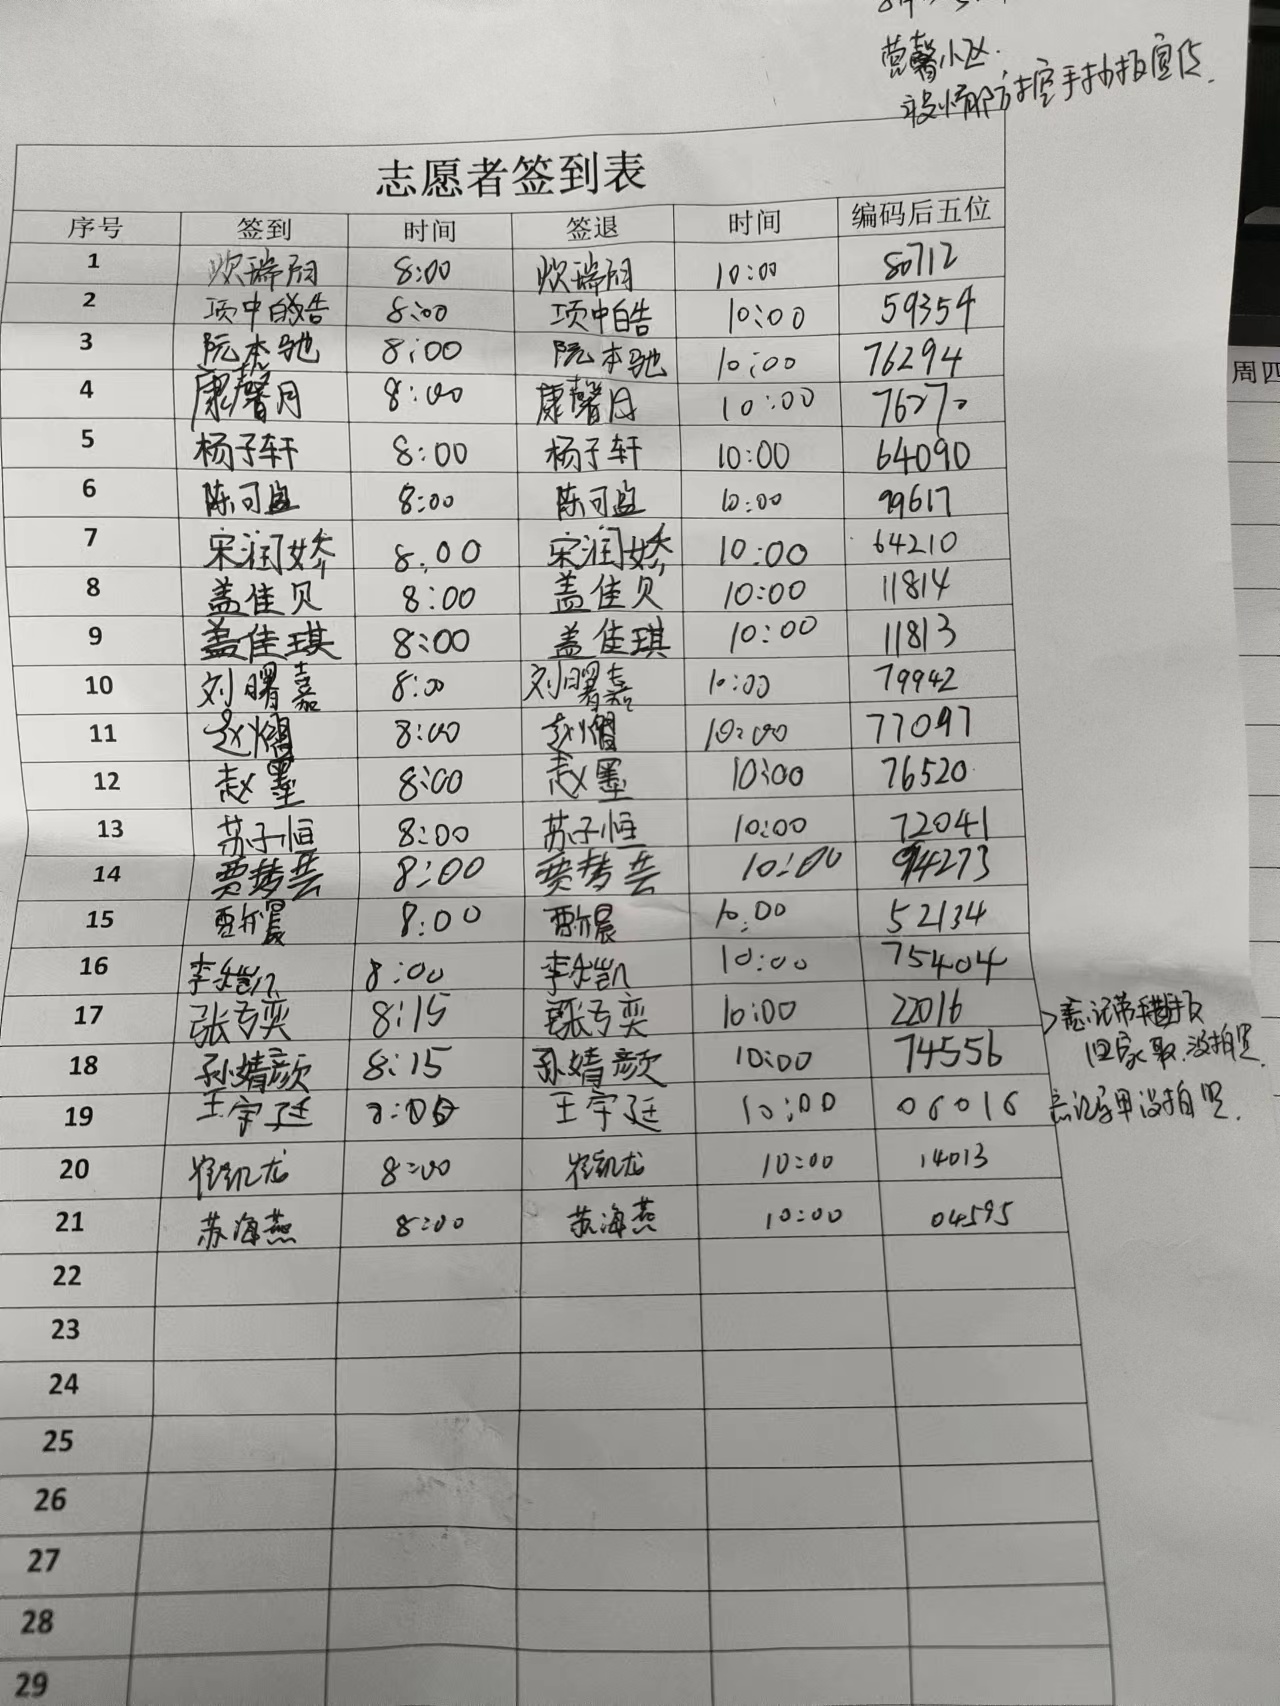 茑馨小区.
疫情防控手抄报宣传.
志愿者签到表
序号 签到 时间 签退 时间 编码后五位
1 瑞 8:00 瑞 10:00 80712
2 项中皓 8:00 项中皓 10:00 59354
3 阮本驰 8:00 阮本驰 10:00 76294
4 康馨月 8:00 康馨月 10:00 76270
5 杨子轩 8:00 杨子轩 10:00 64090
6 陈可 8:00 陈可 10:00 99617
7 宋润娇 8.00 宋润娇 10:00 64210
8 盖佳贝 8:00 盖佳贝 10:00 11814
9 盖佳琪 8:00 盖佳琪 10:00 11813
10 刘曙嘉 8:00 刘曙嘉 10:00 79942
11 赵熠 8:00 赵熠 10:00 77097
12 赵墨 8:00 赵墨 10:00 76520
13 苏子恒 8:00 苏子恒 10:00 72041
14 贾梦芸 8:00 贾梦芸 10:00 94273
15 8:00 10:00 52134
16 李 凯 8:00 李 凯 10:00 75404
17 张 奕 8:15 张 奕 10:00 22016 忘记带手抄报
18 孙婧颜 8:15 孙婧颜 10:00 74556 回家取.没拍照.
19 王宇廷 8:00 王宇廷 10:00 06016 忘记穿马甲没拍照.
20 崔凯龙 8:00 崔凯龙 10:00 14013
21 苏海燕 8:00 苏海燕 10:00 04595
22
23
24
25
26
27
28
29
周四